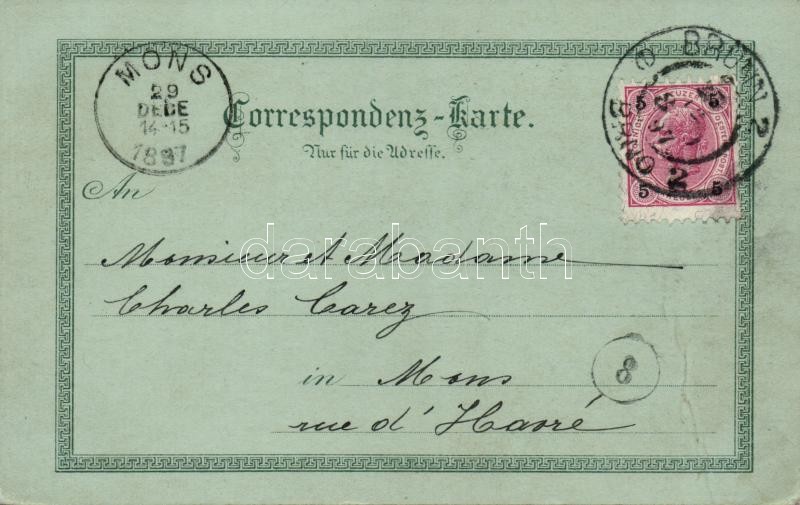 MONS
29
DECE
14-15
1897
BRÜNN 2
BRNO
2
5 5
5 5
Correspondenz-Karte.
Nur für die Adresse.
An
Monsieur et Madame
Charles Carez
in Mons
rue d'Havré
8
darabanth